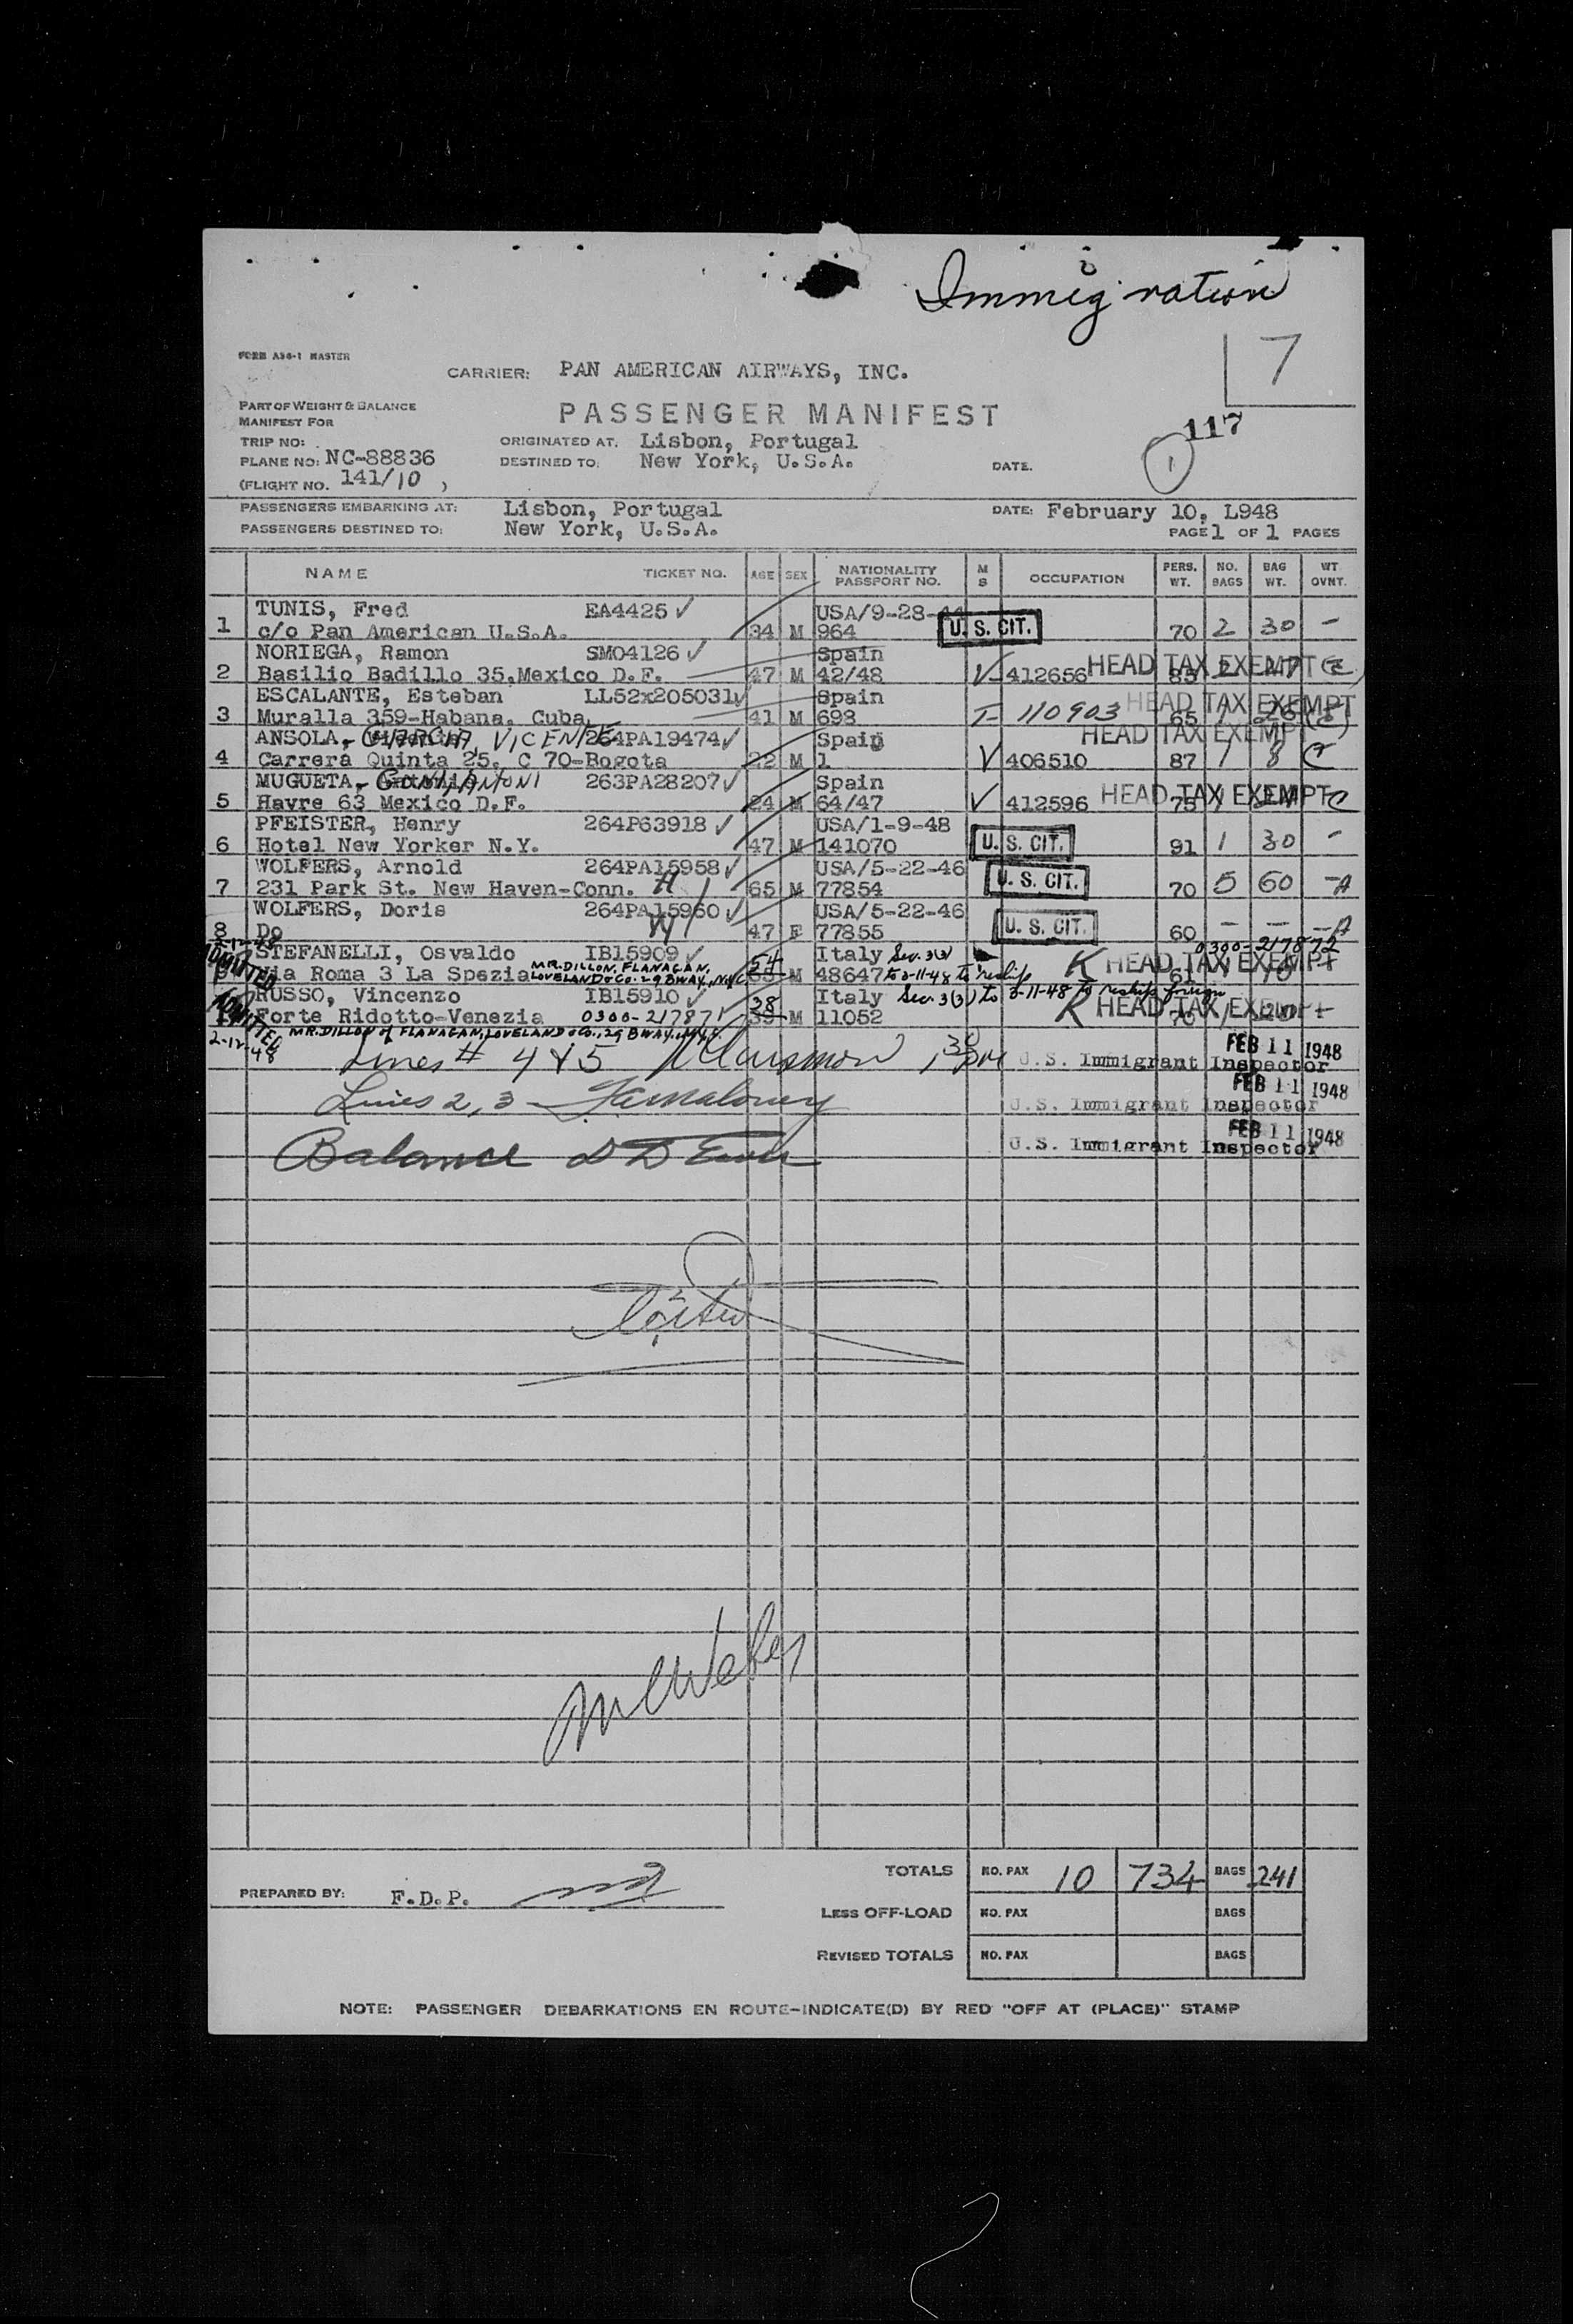 Immigration
FORM A36-1 MASTER
7
CARRIER: PAN AMERICAN AIRWAYS, INC.
PART OF WEIGHT & BALANCE
MANIFEST FOR
PASSENGER MANIFEST
117
TRIP NO:
ORIGINATED AT. Lisbon, Portugal
1
PLANE NO: NC-88836
DESTINED TO: New York, U.S.A.
DATE.
(FLIGHT NO. 141/10 )
PASSENGERS EMBARKING AT: Lisbon, Portugal
DATE: February 10, L948
PASSENGERS DESTINED TO: New York, U.S.A.
PAGE 1 OF 1 PAGES
NAME TICKET NO. AGE SEX NATIONALITY PASSPORT NO. M S OCCUPATION PERS. WT. NO. BAGS BAG WT. WT OVNT.
TUNIS, Fred EA4425 ✓ USA/9-28-
1 c/o Pan American U.S.A. 34 M 964 U. S. CIT. 70 2 30 -
NORIEGA, Ramon SM04126 ✓ Spain
2 Basilio Badillo 35, Mexico D.F. 47 M 42/48 V- 412656 HEAD TAX EXEMPT
ESCALANTE, Esteban LL52x205031 ✓ Spain
3 Muralla 359-Habana. Cuba. 41 M 698 T- 110903 HEAD TAX EXEMPT 65
ANSOLA, GARCIA, VICENTE 264PA19474 ✓ Spain HEAD TAX EXEMPT
4 Carrera Quinta 25. C 70-Bogota 22 M 1 V 406510 87 1 8 C
MUGUETA, 263PA28207 ✓ Spain
5 Havre 63 Mexico D.F. 24 M 64/47 V 412596 HEAD TAX EXEMPT C
PFEISTER, Henry 264P63918 ✓ USA/1-9-48
6 Hotel New Yorker N.Y. 47 M 141070 U. S. CIT. 91 1 30 -
WOLFERS, Arnold 264PA15958 ✓ USA/5-22-46
7 231 Park St. New Haven-Conn. 65 M 77854 U. S. CIT. 70 5 60 - A
WOLFERS, Doris 264PA15960 ✓ USA/5-22-46
8 Do 47 F 77855 U. S. CIT. 60 - - - A
STEFANELLI, Osvaldo IB15909 ✓ 54 Italy Sec. 3(3) 0300-217872
ADMITTED Via Roma 3 La Spezia MR. DILLON, FLANAGAN, LOVELAND & Co. 29 BWAY., N.Y.C. M 48647 to 3-11-48 to reship K HEAD TAX EXEMPT
RUSSO, Vincenzo IB15910 ✓ 38 Italy Sec. 3(3) to 3-11-48 to reship foreign
ADMITTED Forte Ridotto-Venezia 0300-217871 39 M 11052 R HEAD TAX EXEMPT
2-12-48 MR. DILLON of FLANAGAN, LOVELAND & Co., 29 BWAY. N.Y.C.
Lines # 4 & 5 U.S. Immigrant Inspector FEB 11 1948
Lines 2, 3 - U.S. Immigrant Inspector FEB 11 1948
Balance U.S. Immigrant Inspector FEB 11 1948
TOTALS NO. PAX 10 734 BAGS 241
PREPARED BY: F.D.P.
LESS OFF-LOAD NO. PAX BAGS
REVISED TOTALS NO. PAX BAGS
NOTE: PASSENGER DEBARKATIONS EN ROUTE-INDICATE(D) BY RED "OFF AT (PLACE)" STAMP